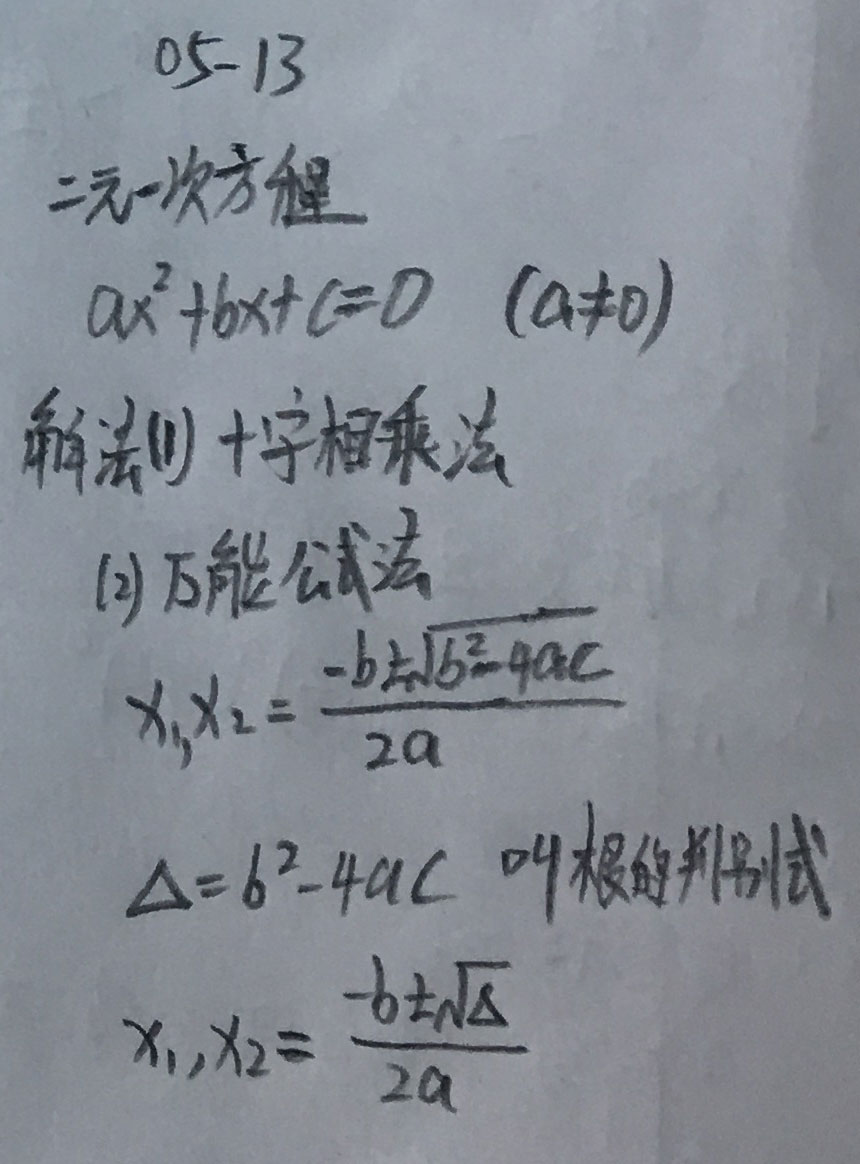 05-13
二元一次方程
ax²+bx+c=0 (a≠0)
解法(1) 十字相乘法
(2) 万能公式法
x₁,x₂ = (-b±√(b²-4ac))/(2a)
△=b²-4ac 叫根的判别式
x₁,x₂ = (-b±√△)/(2a)